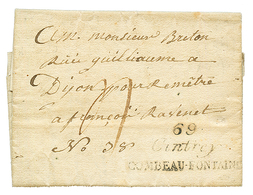 A Monsieur Breton
Ruë guilliaume a
Dyon pour Remêtre
a françois Ravenet
No 38
69
Cintrey
COMBEAU-FONTAINE